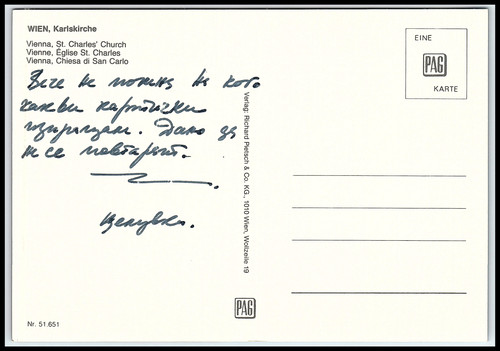 WIEN, Karlskirche
Vienna, St. Charles' Church
Vienne, Église St. Charles
Vienna, Chiesa di San Carlo
Вече не помня на кого
какви картички
изпращам. Дано да
не се повтарят.
целувки.
EINE
PAG
KARTE
Verlag: Richard Pietsch & Co. KG., 1010 Wien, Wollzeile 19
PAG
Nr. 51.651